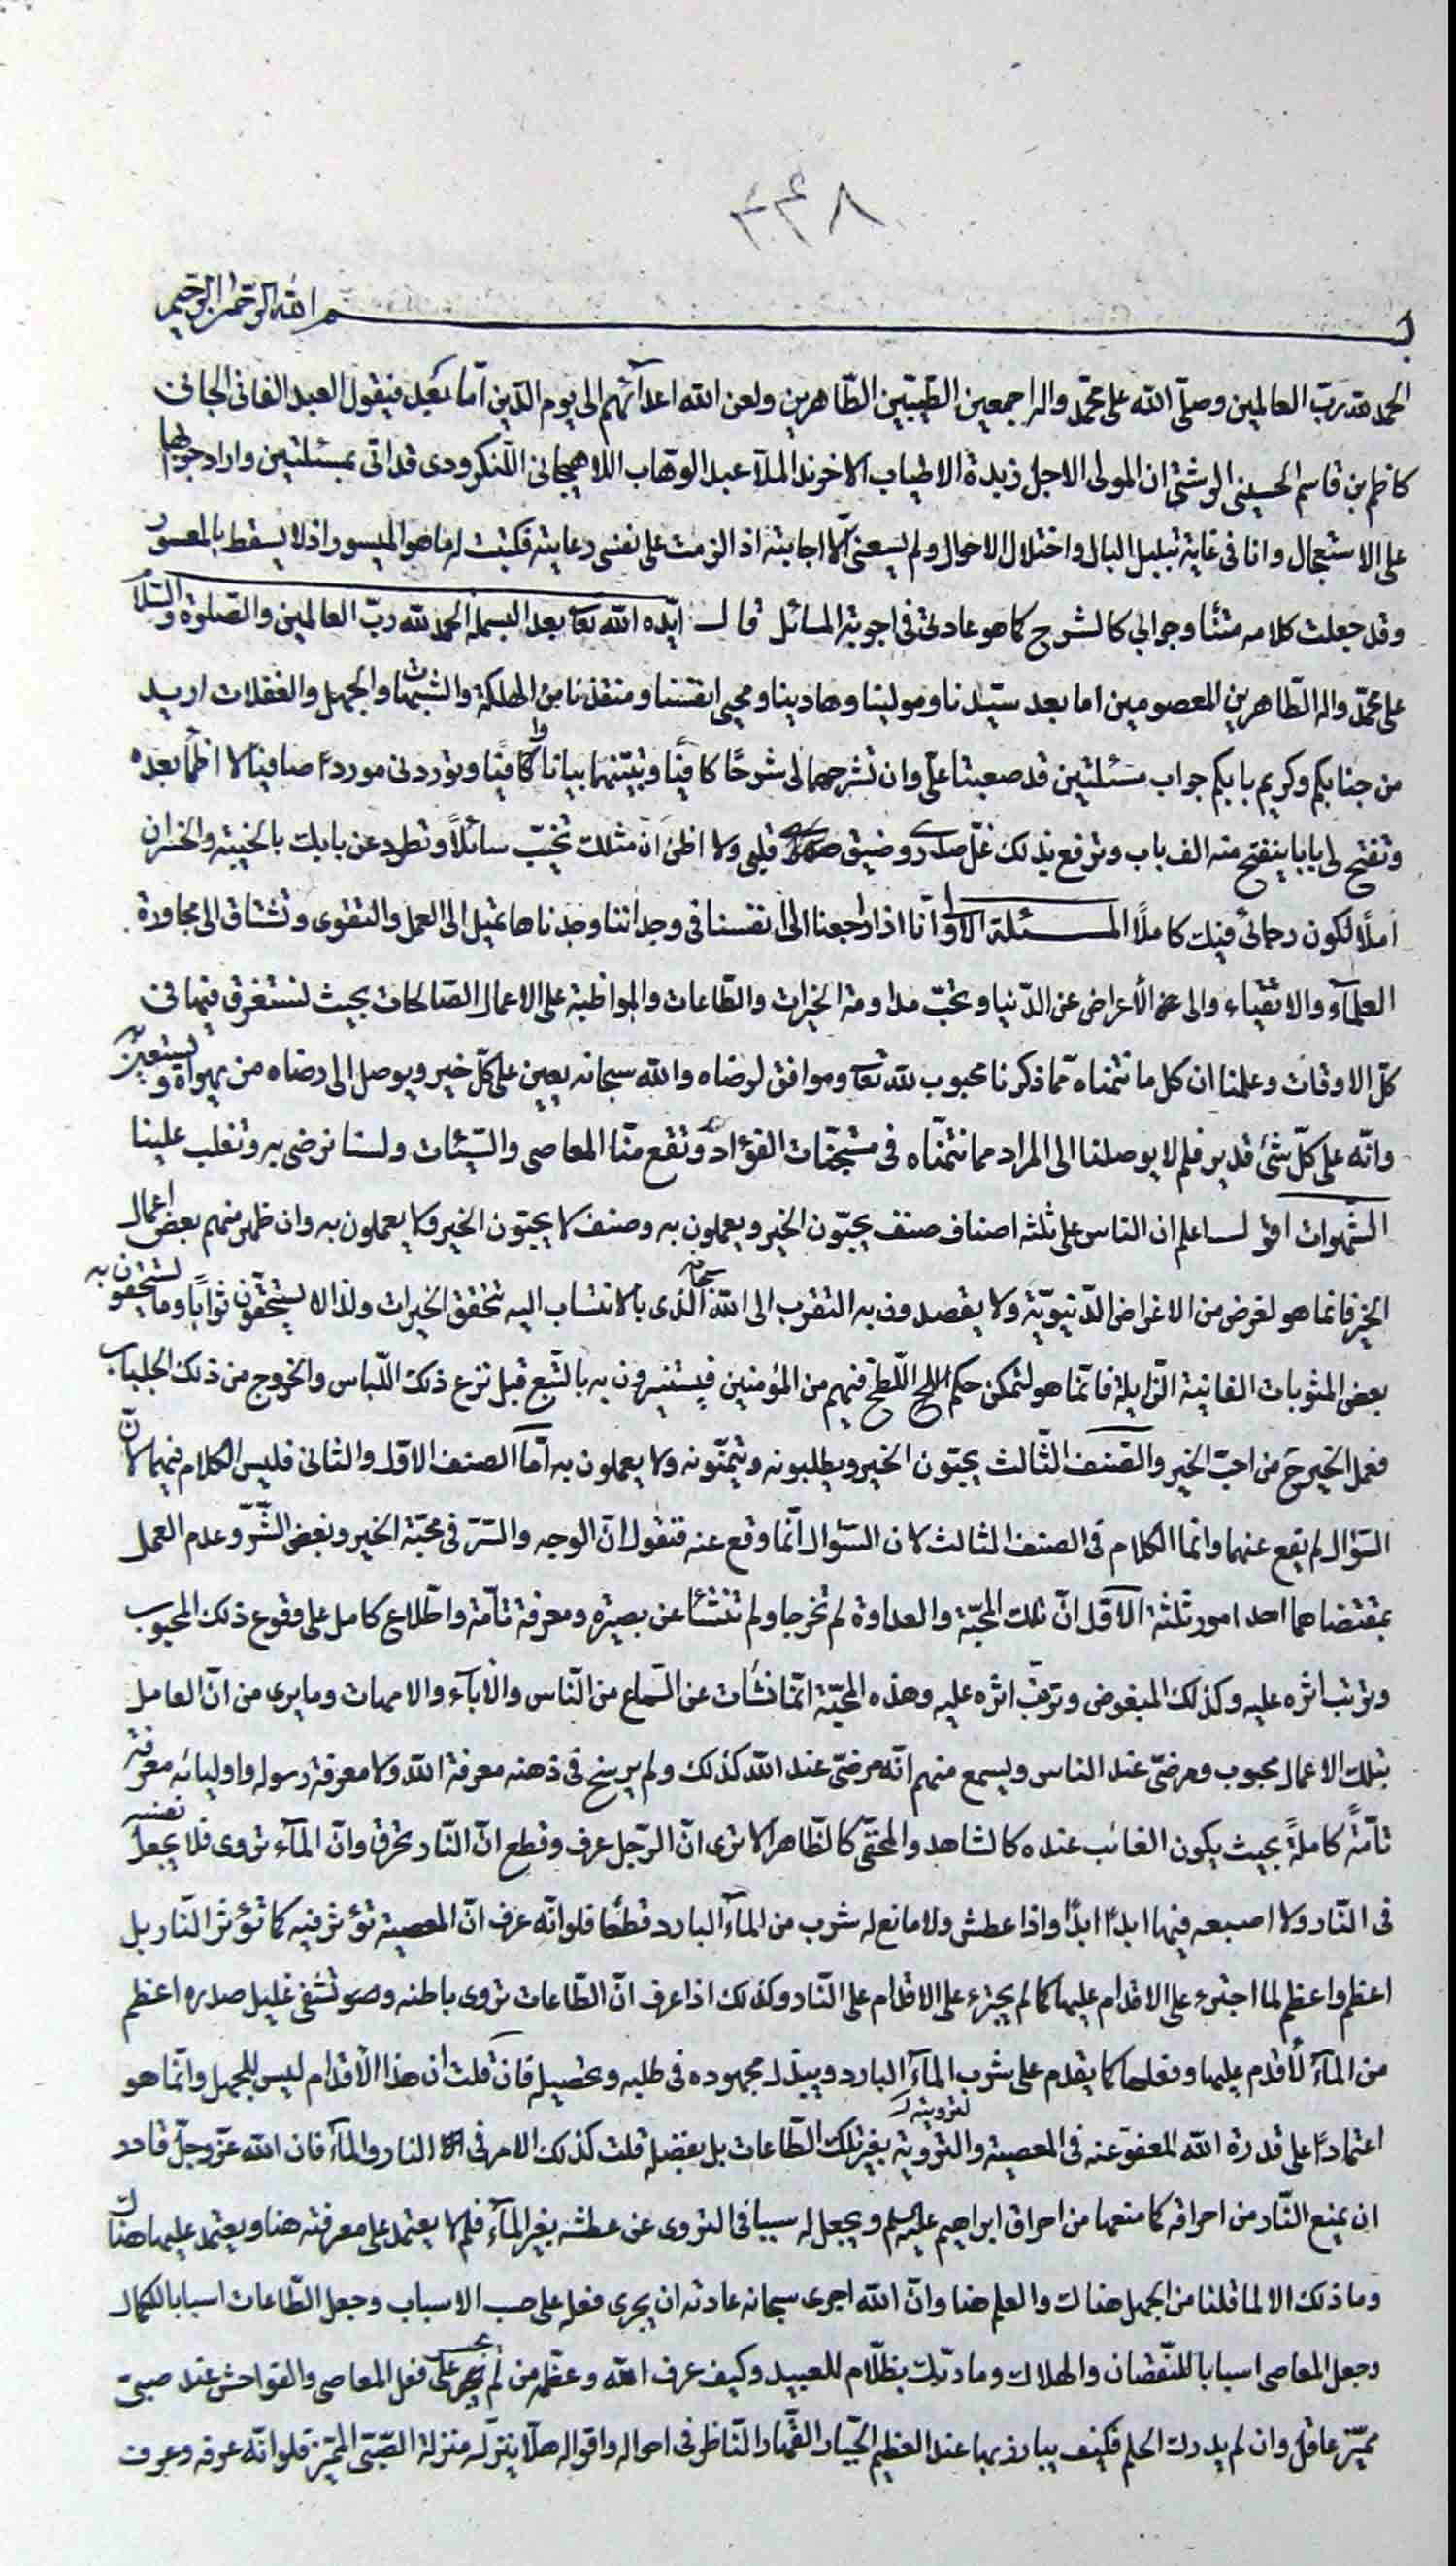 ٢٣٨
بسم الله الرحمن الرحيم
الحمد لله ربّ العالمين وصلّى الله على محمّد واله اجمعين الطّيّبين الطّاهرين ولعن الله اعدآئهم الى يوم الدّين امّا بعد فيقول العبد الفانى الجانى
كاظم بن قاسم الحسينى الرشتى ان المولى الاجل زبدة الاطياب الاخوند الملّا عبد الوهّاب اللاهيجانى اللنكرودى قد اتى بمسئلتين واراد جوابهما
على الاستعجال وانا فى غاية تبلبل البال واختلال الاحوال ولم يسعنى الّا اجابته اذ الزمت على نفسى رعايته فكتبت له ما هو الميسور اذ لا يسقط بالمعسور
وقد جعلت كلامه متنًا وجوابى كالشرح كما هو عادتى فى اجوبة المسائل قال ايّده الله تعا بعد البسملة الحمد لله ربّ العالمين والصّلوة والسّلام
على محمّد واله الطّاهرين المعصومين اما بعد سيّدنا ومولينا وهادينا ومحيى انفسنا ومنقذنا من الهلكة والشبهات والجهل والغفلات اريد
من جنابكم وكريم بابكم جواب مسئلتين قد صعبتا علىّ وان تشرحهما لى شرحًا كافيًا وتبيّنهما بيانا وافيًا وتوردنى موردًا صافيا لا اظمأ بعده
وتفتح لى بابا ينفتح منه الف باب وترفع بذلك غلّ صدرى وضيق قلبى ولا اظنّ انّ مثلك تخيّب سائلًا وتطرد عن بابك بالخيبة والخسران
املًا لكون رجائى فيك كاملًا المسئلة الاولى انّا اذا راجعنا الى انفسنا فى وجداننا وجدناها تميل الى العمل والتقوى وتشتاق الى مجاورة
العلمآء والاتقياء والى الأعراض عن الدّنيا وتحبّ مداومة الخيرات والطّاعات والمواظبة على الاعمال الصّالحات بحيث نستغرق فيها فى
كلّ الاوقات وعلمنا ان كل ما نتمناه ممّا ذكرنا محبوب لله تعا وموافق لرضاه والله سبحانه يعين على كلّ خير ويوصل الى رضاه من يهواه ويستعين به
وانّه على كلّ شئ قدير فلم لا يوصلنا الى المراد مما نتمنّاه فى مستجنّات الفؤاد وتقع منّا المعاصى والسّيّئات ولسنا نرضى به وتغلب علينا
الشّهوات اقول اعلم ان الناس على ثلثه اصناف صنف يحبّون الخير ويعملون به وصنف لا يحبّون الخير ولا يعملون به وان ظهر منهم بعض اعمال
الخير فانما هو لغرض من الاغراض الدّنيويّة ولا يقصدون به التقرب الى الله سبحانه الّذى بالانتساب اليه تتحقق الخيرات ولذا لا يستحقّون ثوابًا وما يستحقون به
بعض المثوبات الفانية الزّايلة فانّما هو لتمكن حكم اللطخ فيهم من المؤمنين فيستنيرون به بالتّبع قبل نزع ذلك اللّباس والخروج من ذلك الجلباب
فعمل الخير ح من احبّ الخير والصّنف الثّالث يحبّون الخير ويطلبونه ويتمنّونه ولا يعملون به امّا الصنف الاوّل والثانى فليس الكلام فيهما لانّ
السّؤال لم يقع عنهما وانما الكلام فى الصنف الثالث لان السّؤال انّما وقع عنه فنقول انّ الوجه والسّر فى محبّة الخير وبغض الشّرّ وعدم العمل
بمقتضاهما احد امور ثلثة الاوّل انّ تلك المحبّة والعداوة لم تخرجا ولم تنشئا عن بصيرة ومعرفة تآمّة واطّلاع كامل على وقوع ذلك المحبوب
وترتب اثره عليه وكذلك المبغوض وترتّب اثره عليه وهذه المحبّة انّما نشأت عن السّماع من النّاس والاباء والامهات وما يرى من انّ العامل
بتلك الاعمال محبوب ومرضىّ عند الناس ويسمع منهم انّه مرضىّ عند الله كذلك ولم يرسخ فى ذهنه معرفة الله ولا معرفة رسوله واوليائه معرفة
تآمّةً كاملةً بحيث يكون الغائب عنده كالشاهد والمخفىّ كالظّاهر الا ترى انّ الرّجل عرف وقطع انّ النّار تحرق وانّ المآء تروى فلا يجعل نفسه
فى النّار ولا اصبعه فيها ابدًا ابدًا واذا عطش ولا مانع له شرب من المآء البارد قطعًا فلو انّه عرف انّ المعصية تؤثر فيه كما تؤثر النّار بل
اعظم واعظم لما اجترء على الاقدام عليها كما لم يجترء على الاقدام على النّار وكذلك اذا عرف انّ الطّاعات تروى باطنه وتشفى غليل صدره اعظم
من المآء لأقدم عليها وفعلها كما يقدم على شرب المآء البارد ويبذل مجهوده فى طلبه وتحصيله فان قلت ان هذا الاقدام ليس للجهل وانّما هو
اعتمادًا على قدرة الله المعفوّ عنه فى المعصية والتروية بغير تلك الطّاعات بل بفضله قلت كذلك الامر فى النار والمآء فان الله عزّ وجلّ قادر
ان يمنع النّار من احراقه كما منعها من احراق ابراهيم عليه السلم ويجعل له سببا فى التروى عن عطشه بغير المآء فلم لا يعتمد على معرفته هنا ويعتمد عليها هناك
وما ذلك الا لما قلنا من الجهل هناك والعلم هنا وانّ الله اجرى سبحانه عادته ان يجرى فعله على حسب الاسباب وجعل الطّاعات اسبابا للكمال
وجعل المعاصى اسبابا للنّقصان والهلاك وما ربّك بظلّام للعبيد وكيف عرف الله وعظّمه من لم يجترء على فعل المعاصى والفواحش عند صبىّ
مميّز عاقل وان لم يدرك الحلم فكيف يبارز بها عند العظيم الجبّار القّهار النّاظر فى احواله واقواله هلّا ينزله منزلة الصّبّى المميّز فلو انّه عرفه وعرف